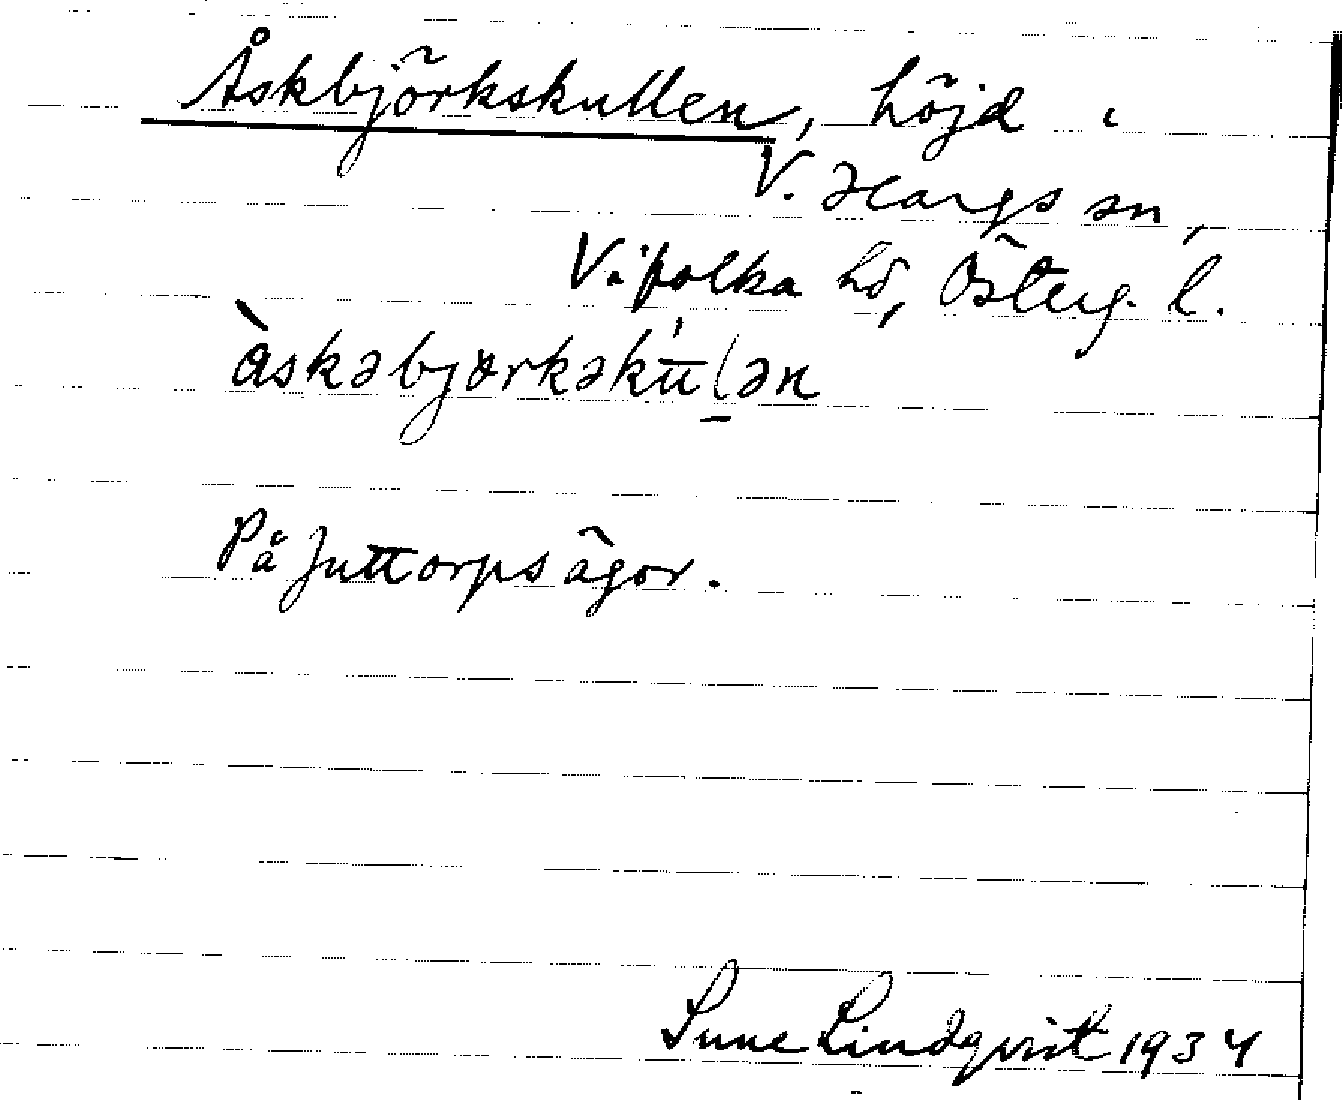 Åskbjörkskullen, höjd i
V. Hargs sn,
Vifolka hd, Österg. l.
àskəbjørkəkúlən
På Juttorps ägor.
Sune Lindqvist 1934